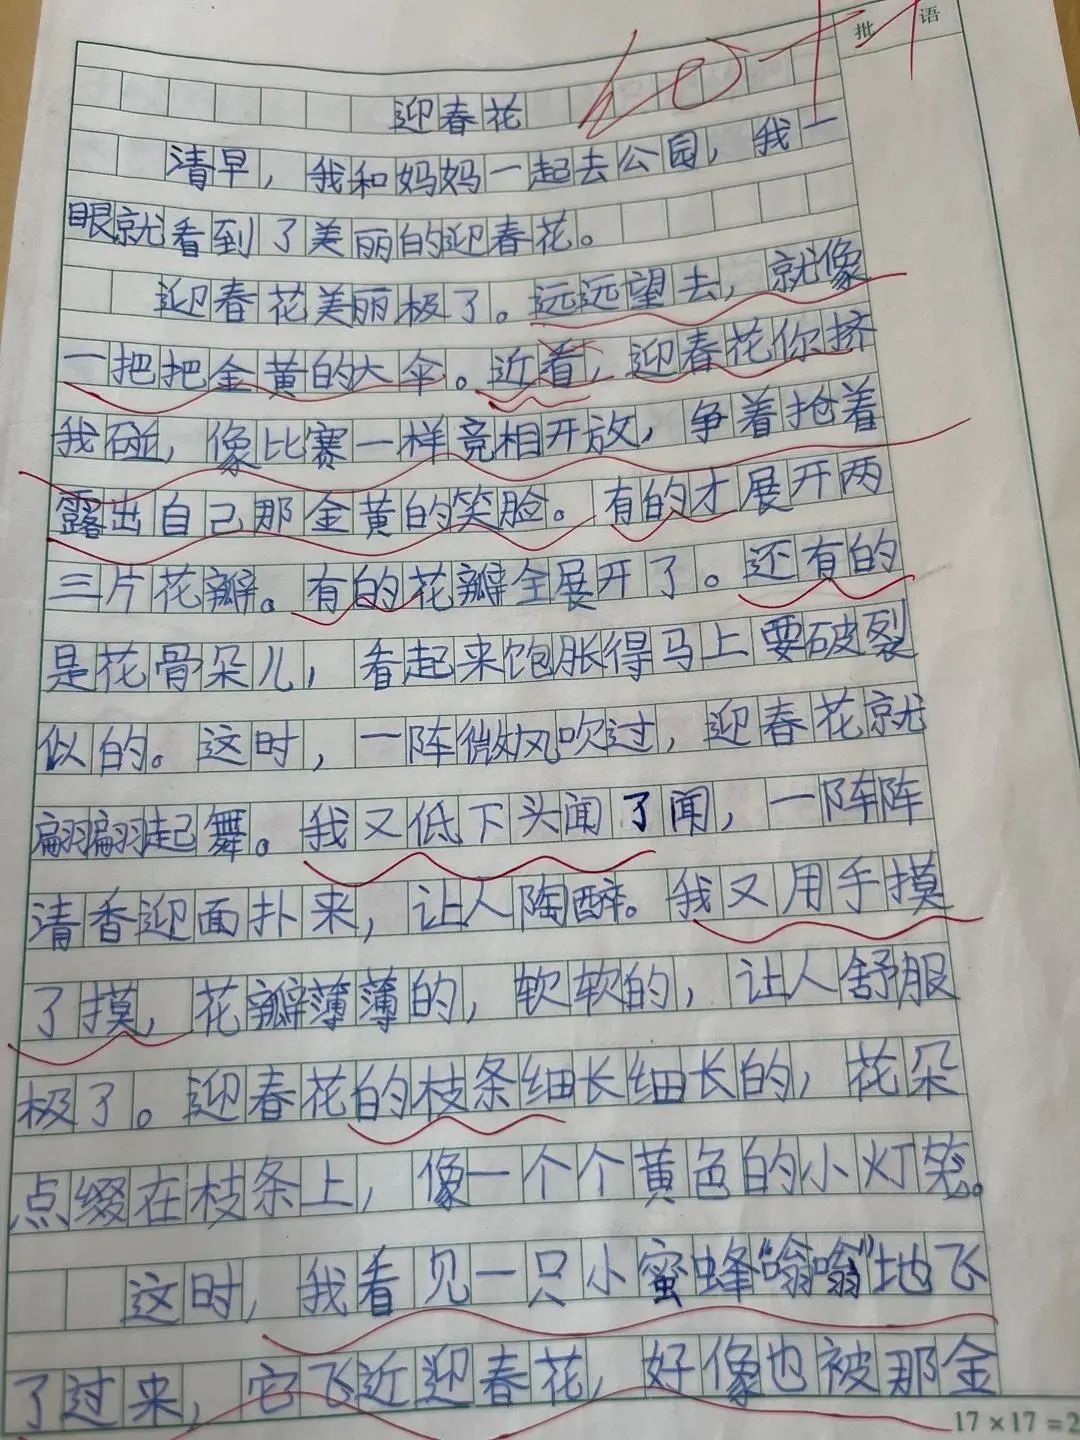 批 语
60+1
迎春花
清早，我和妈妈一起去公园，我一
眼就看到了美丽的迎春花。
迎春花美丽极了。远远望去，就像
一把把金黄的大伞。近看，迎春花你挤
我碰，像比赛一样竞相开放，争着抢着
露出自己那金黄的笑脸。有的才展开两
三片花瓣。有的花瓣全展开了。还有的
是花骨朵儿，看起来饱胀得马上要破裂
似的。这时，一阵微风吹过，迎春花就
翩翩起舞。我又低下头闻了闻，一阵阵
清香迎面扑来，让人陶醉。我又用手摸
了摸，花瓣薄薄的，软软的，让人舒服
极了。迎春花的枝条细长细长的，花朵
点缀在枝条上，像一个个黄色的小灯笼。
这时，我看见一只小蜜蜂“嗡嗡”地飞
了过来，它飞近迎春花，好像也被那金
17×17=2